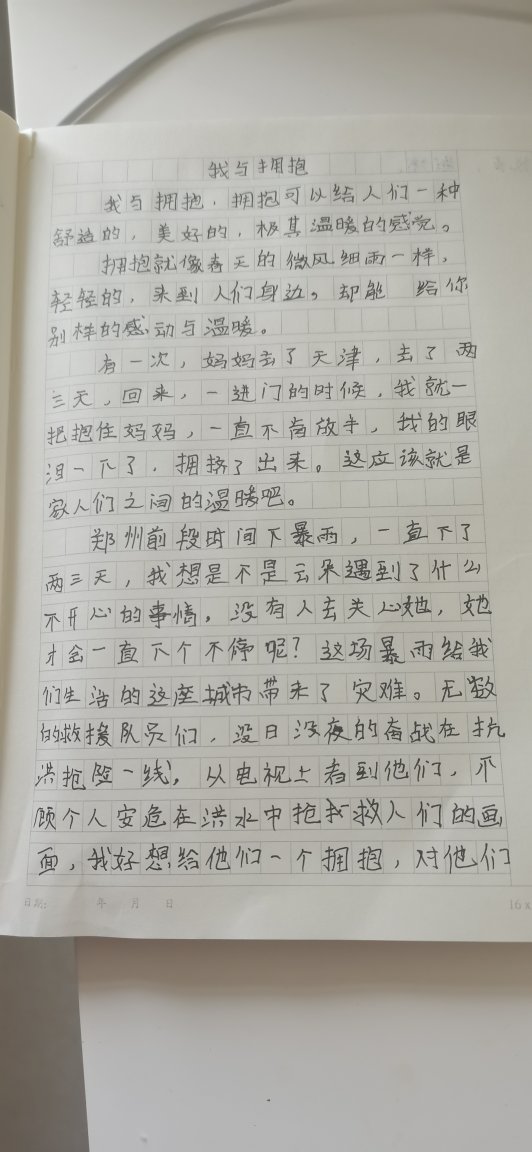 我与拥抱
我与拥抱,拥抱可以给人们一种
舒适的,美好的,极其温暖的感觉。
拥抱就像春天的微风细雨一样,
轻轻的,来到人们身边。却能 给你
别样的感动与温暖。
有一次,妈妈去了天津,去了两
三天,回来,一进门的时候,我就一
把抱住妈妈,一直不肯放手,我的眼
泪一下了,拥挤了出来。这应该就是
家人们之间的温暖吧。
郑州前段时间下暴雨,一直下了
两三天,我想是不是云朵遇到了什么
不开心的事情,没有人去关心她,她
才会一直下个不停呢?这场暴雨给我
们生活的这座城市带来了灾难。无数
的救援队员们,没日没夜的奋战在抗
洪抢险一线,从电视上看到他们,不
顾个人安危在洪水中抢救人们的画
面,我好想给他们一个拥抱,对他们
日期: 年 月 日
16 x